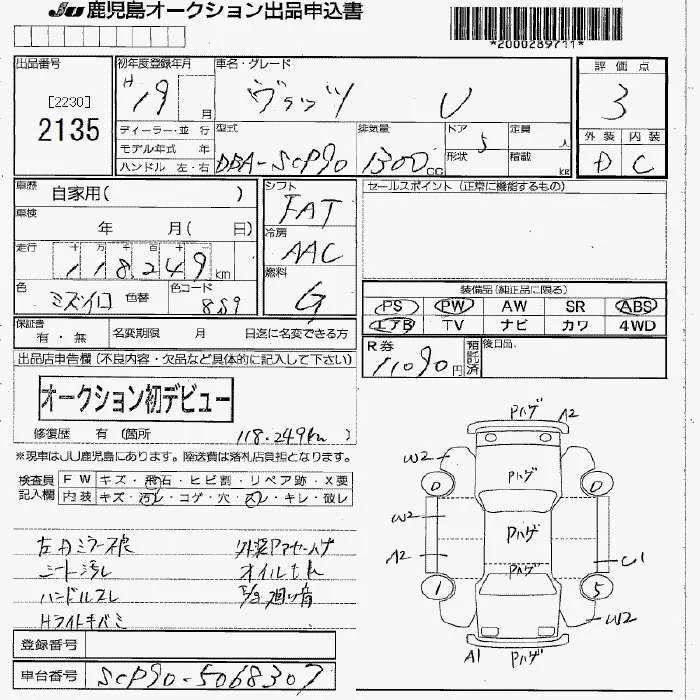 JU 鹿児島オークション出品申込書
*2000289711*
出品番号
[2230]
2135
初年度登録年月
H 19 月
車名・グレード
ヴィッツ U
評価点
3
外装 内装
D C
ディーラー・並行
モデル年式 年
ハンドル 左・右
型式
DBA-SCP90
排気量
1300 cc
ドア 5
形状
定員 人
積載 kg
車歴
自家用( )
車検
年 月( 日)
走行
十 万 千 百 十 一
118.249 km
色
ミズイロ 色替
色コード
8S9
シフト
FAT
冷房
AAC
燃料
G
セールスポイント (正常に機能するもの)
装備品(純正品に限る)
PS PW AW SR ABS
エアB TV ナビ カワ 4WD
保証書
有・無
名変期限 月 日迄に名変できる方
R券
11090円
預託済
後日品
出品店申告欄 (不良内容・欠品など具体的に記入して下さい)
オークション初デビュー
修復歴 有 (箇所 118.249km )
※現車はJU鹿児島にあります。陸送費は落札店負担となります。
検査員記入欄
FW キズ・飛石・ヒビ割・リペア跡・X要
内装 キズ・汚レ・コゲ・穴・スレ・キレ・破レ
左右ミラー
シート汚レ
ハンドルスレ
Hライトキバミ
オイルモレ
登録番号
車台番号
SCP90-5068307
Pハゲ A2
W2 Pハゲ
0 0
W2 Pハゲ
A2 Pハゲ U1
1 5
W2
A1 Pハゲ